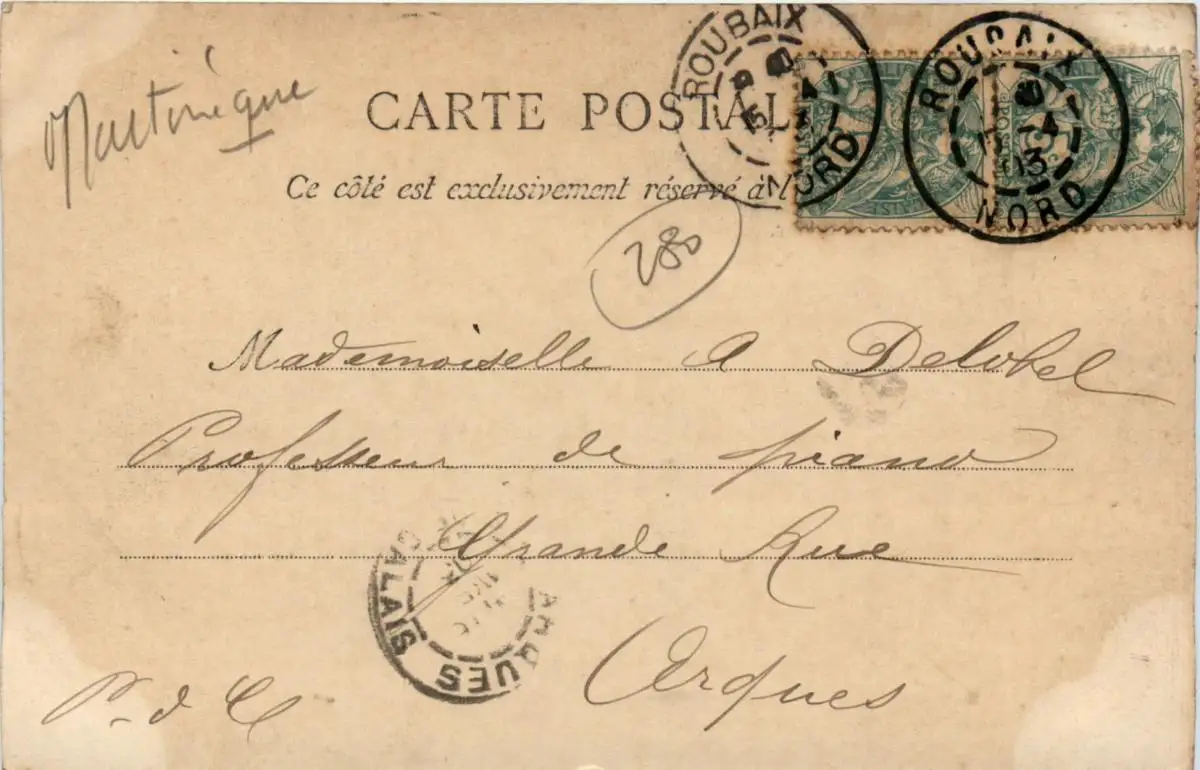 Martinique
CARTE POSTAL
Ce côté est exclusivement réservé à l
ROUBAIX
NORD
ROUBAIX
13 -4
03
NORD
280
Mademoiselle A Delobel
Professeur de piano
Grande Rue
Arques
P. d C
ARQUES
CALAIS